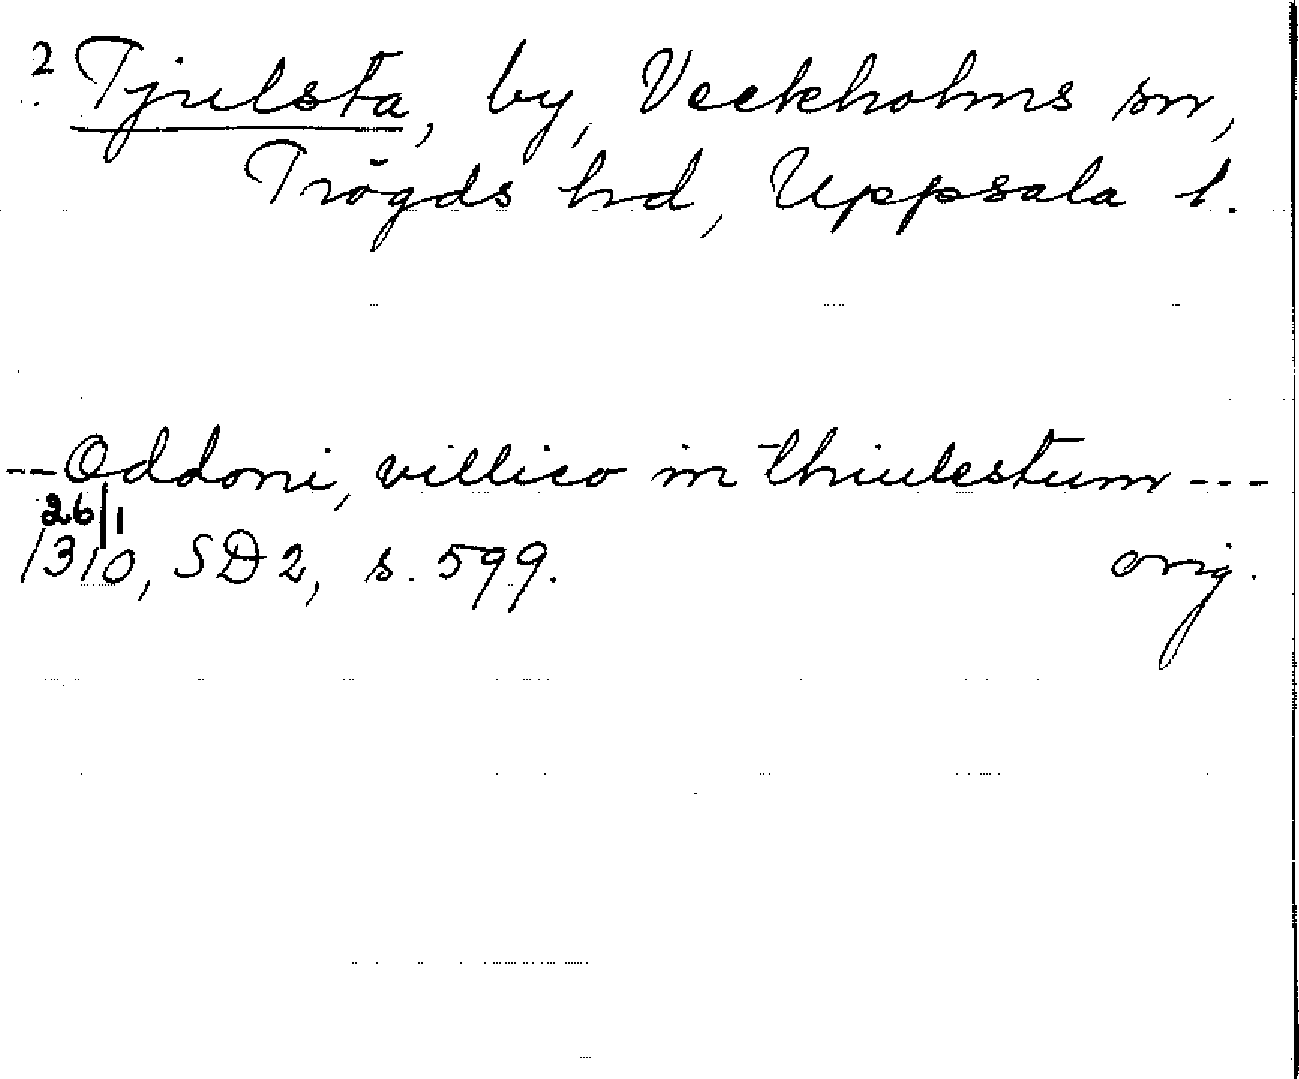 ? Tjulsta, by, Veckholms sn,
Trögds hd, Uppsala l.
-- Oddoni, villico in thiulestum ---
26/1
1310, SD 2, s. 599. orig.